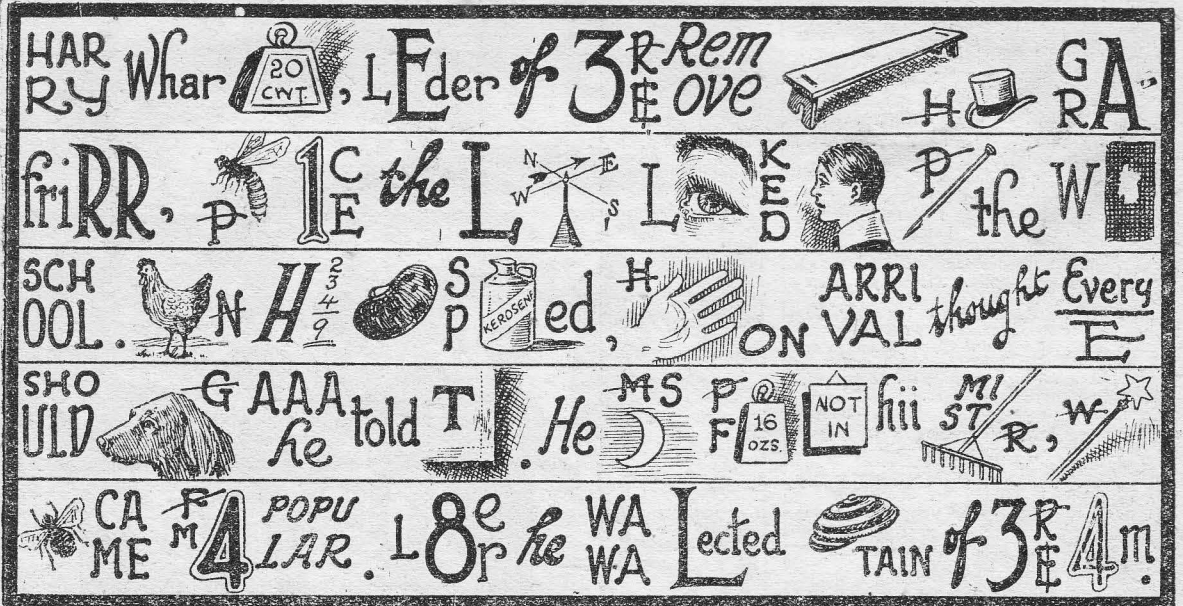 HAR RY Whar 20 CWT. , LEder of 3 R E Rem ove H G R A
friRR, P 1 C E the L N E W S L K E D P the W
SCH OOL. N H 2 3 4 9 S P KEROSEN ed, H ON ARRI VAL thought Every E
SHO ULD G AAA he told T . He M S P F 16 OZS. NOT IN hii MI ST R, W
CA ME F M 4 POPU LAR. L 8 e r he WA WA Lected TAIN of 3 R E 4 m.